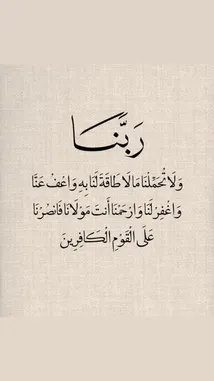 رَبَّنَا
وَلَا تُحَمِّلْنَا مَا لَا طَاقَةَ لَنَا بِهِ وَاعْفُ عَنَّا
وَاغْفِرْ لَنَا وَارْحَمْنَا أَنتَ مَوْلَانَا فَانصُرْنَا
عَلَى الْقَوْمِ الْكَافِرِينَ